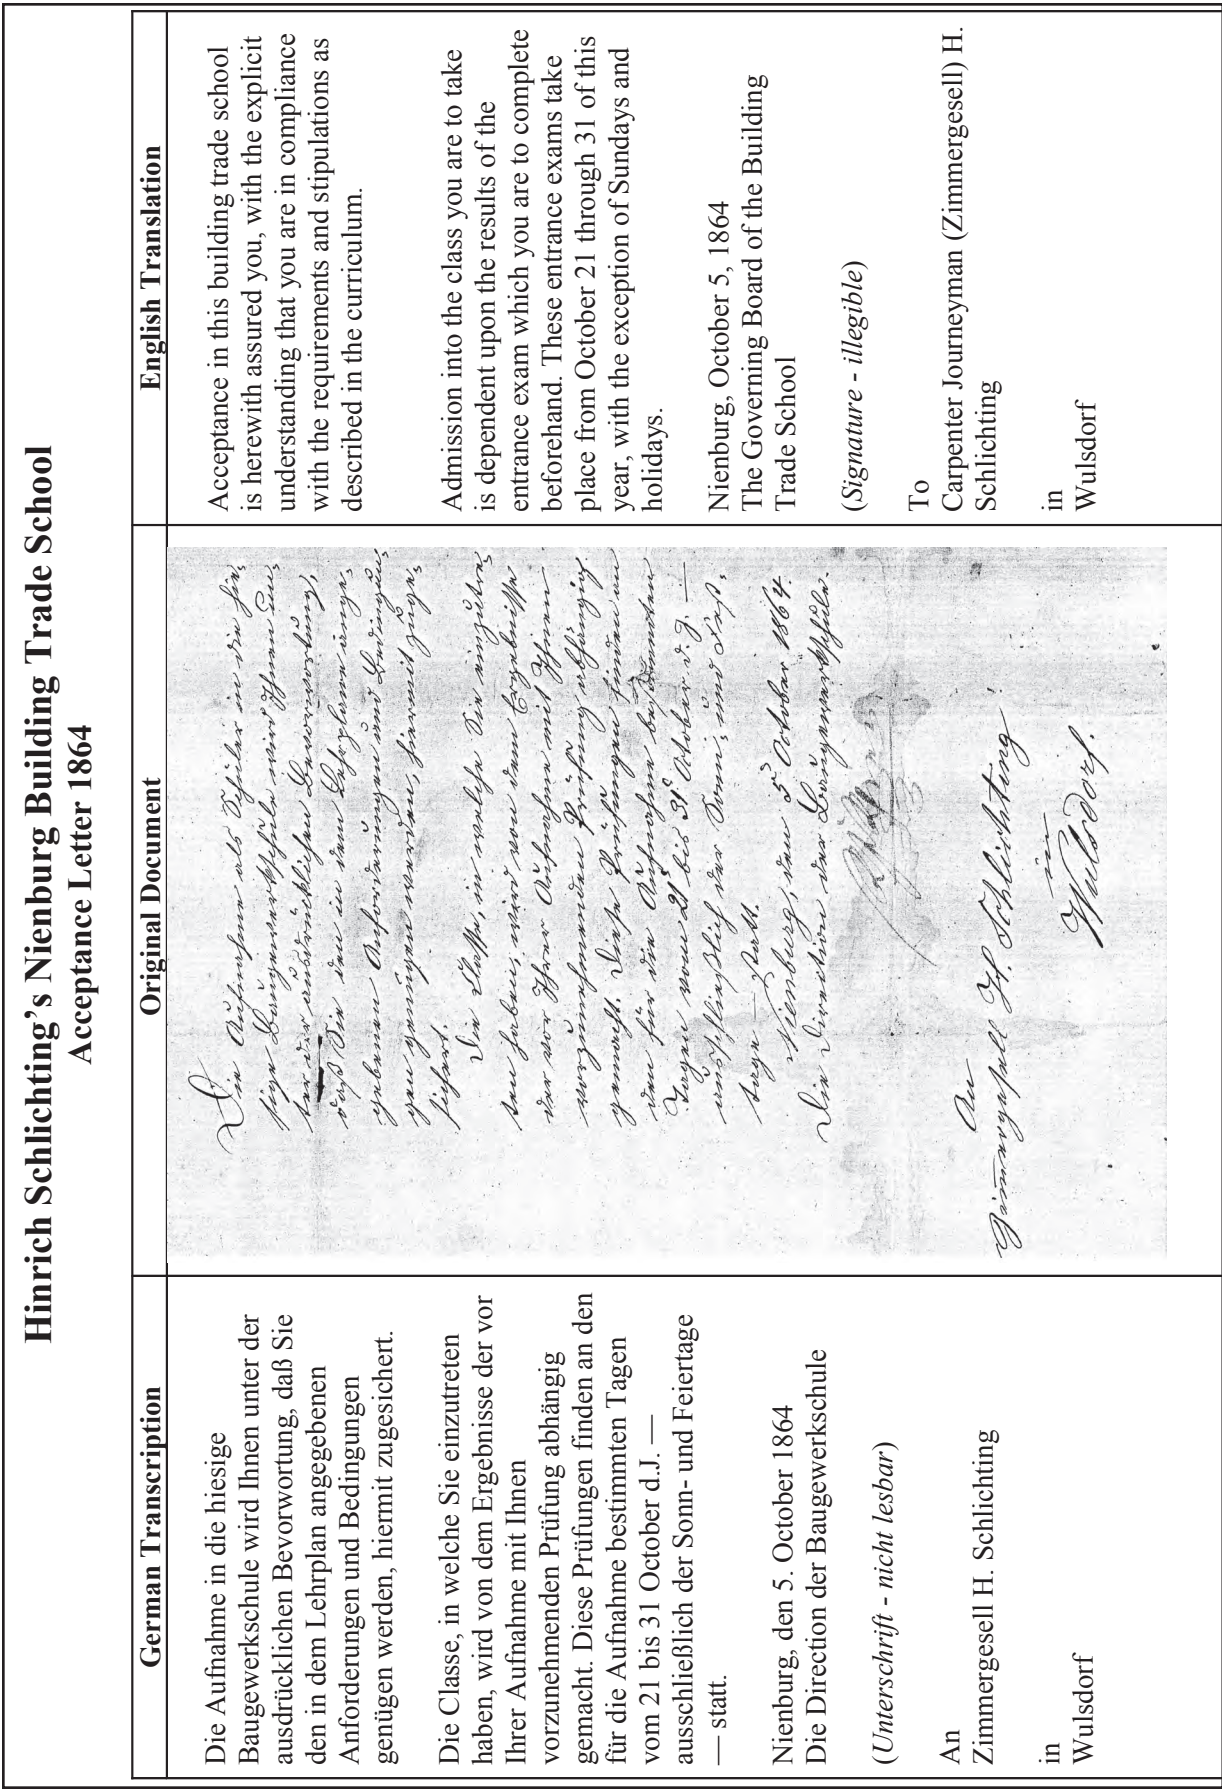 Hinrich Schlichting's Nienburg Building Trade School
Acceptance Letter 1864
German Transcription
Die Aufnahme in die hiesige
Baugewerkschule wird Ihnen unter der
ausdrücklichen Bevorwortung, daß Sie
den in dem Lehrplan angegebenen
Anforderungen und Bedingungen
genügen werden, hiermit zugesichert.
Die Classe, in welche Sie einzutreten
haben, wird von dem Ergebnisse der vor
Ihrer Aufnahme mit Ihnen
vorzunehmenden Prüfung abhängig
gemacht. Diese Prüfungen finden an den
für die Aufnahme bestimmten Tagen
vom 21 bis 31 October d.J. —
ausschließlich der Sonn- und Feiertage
— statt.
Nienburg, den 5. October 1864
Die Direction der Baugewerkschule
(Unterschrift - nicht lesbar)
An
Zimmergesell H. Schlichting
in
Wulsdorf
Original Document
Die Aufnahme als Schüler in die hie-
sige Baugewerkschule wird Ihnen un-
ter der ausdrücklichen Bevorwortung,
daß Sie den in dem Lehrplane ange-
gebenen Anforderungen und Bedingun-
gen genügen werden, hiermit zuge-
sichert.
Die Classe, in welche Sie einzutre-
ten haben, wird von dem Ergebnisse
der vor Ihrer Aufnahme mit Ihnen
vorzunehmenden Prüfung abhängig
gemacht. Diese Prüfungen finden an
den für die Aufnahme bestimmten
Tagen vom 21 bis 31 October d. J. —
ausschließlich der Sonn- und Fest-
tage — statt.
Nienburg, den 5 October 1864.
Die Direction der Baugewerkschule.
An
Zimmergesell H. Schlichting
in
Wulsdorf.
English Translation
Acceptance in this building trade school
is herewith assured you, with the explicit
understanding that you are in compliance
with the requirements and stipulations as
described in the curriculum.
Admission into the class you are to take
is dependent upon the results of the
entrance exam which you are to complete
beforehand. These entrance exams take
place from October 21 through 31 of this
year, with the exception of Sundays and
holidays.
Nienburg, October 5, 1864
The Governing Board of the Building
Trade School
(Signature - illegible)
To
Carpenter Journeyman (Zimmergesell) H.
Schlichting
in
Wulsdorf